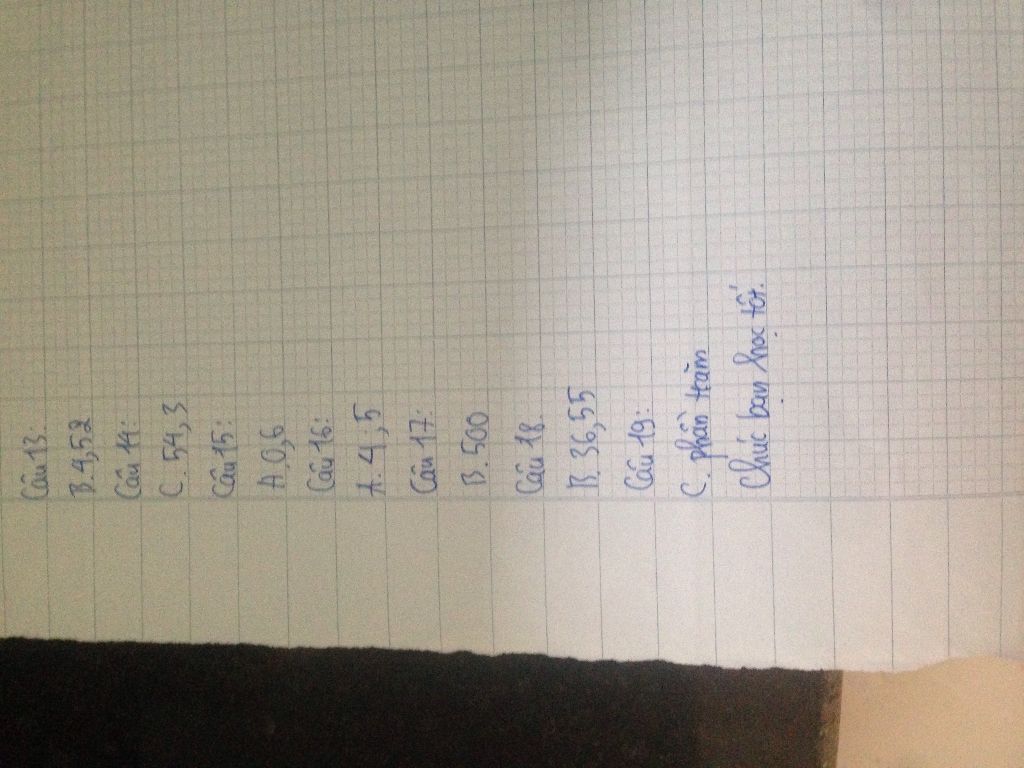 Câu 13:
B. 4,52
Câu 14:
C. 54,3
Câu 15:
A. 0,6
Câu 16:
A. 4,5
Câu 17:
B. 500
Câu 18.
B. 36,55
Câu 19:
C. phần trăm
Chúc bạn học tốt.